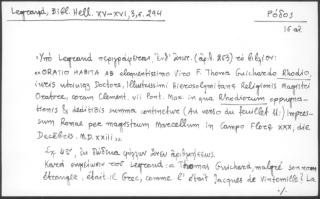 Legrand, Bibl. Hell. XV-XVI, 3, σ. 294
Ρόδος
16 αἰ.
Ὑπὸ Legrand περιγράφεται, ἔνθ' ἀνωτ. (ἀρ. 283) τὸ βιβλίον:
«ORATIO HABITA AB eloquentissimo Viro F. Thoma Guichardo Rhodio,
iuris utriusq Doctore, Illustrissimi Hierosolymitanae Religionis Magistri
Oratore, coram Clemente. vii Pont. Max. in qua Rhodiorum oppugna-
tionis & deditionis summa continetur (Au verso du feuillet 11:) Impres-
sum Romae per magistrum Marcellum in Campo Flore XXX, die
Decēbris. M.D. XXIII»
Σχ. 4ον, ἐκ δώδεκα φύλλων ἄνευ ἀριθμήσεως.
Κατὰ σημείωσιν τοῦ Legrand: «Thomas Guichard, malgré son nom
étrange, était il Grec, comme l'était Jacques de Vintemille? La
./.